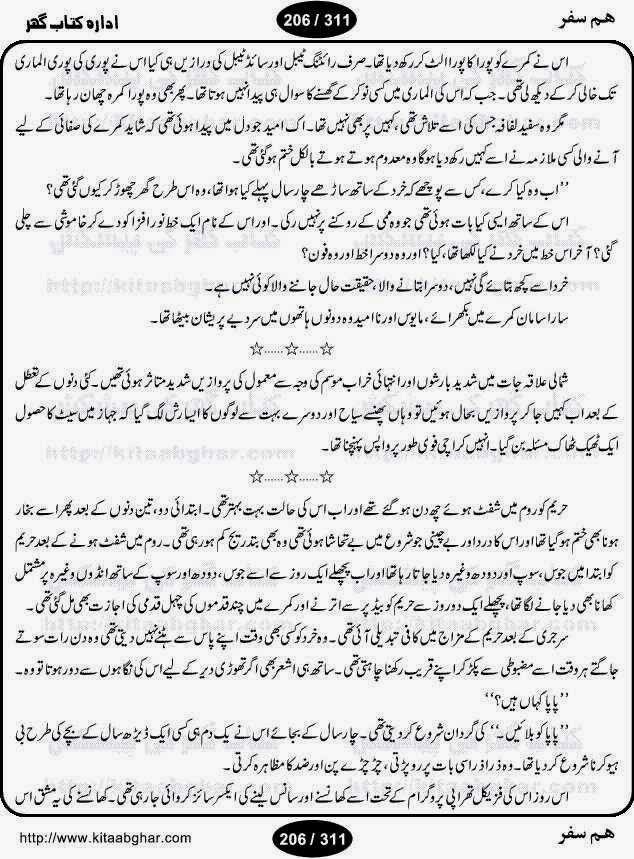 ہم سفر 206 / 311 ادارہ کتاب گھر
اس نے کمرے کو پورا کا پورا الٹ کر رکھ دیا تھا۔ صرف رائٹنگ ٹیبل اور سائڈ ٹیبل کی درازیں ہی کیا اس نے پوری کی پوری الماری
تک خالی کر کے دیکھ لی تھی۔ جب کہ اس کی الماری میں کسی نوکر کے گھسنے کا سوال ہی پیدا نہیں ہوتا تھا۔ پھر بھی وہ پورا کمرہ چھان رہا تھا۔
مگر وہ سفید لفافہ جس کی اسے تلاش تھی، کہیں پر بھی نہیں تھا۔ اک امید جو دل میں پیدا ہوئی تھی کہ شاید کمرے کی صفائی کے لیے
آنے والی کسی ملازمہ نے اسے کہیں رکھ دیا ہوگا وہ معدوم ہوتے ہوتے بالکل ختم ہو گئی تھی۔
’’اب وہ کیا کرے، کس سے پوچھے کہ خرد کے ساتھ ساڑھے چار سال پہلے کیا ہوا تھا، وہ اس طرح گھر چھوڑ کر کیوں گئی تھی؟
اس کے ساتھ ایسی کیا بات ہوئی تھی جو وہ ممی کے روکنے پر نہیں رکی۔ اور اس کے نام ایک خط نور افزا کو دے کر خاموشی سے چلی
گئی؟ آخر اس خط میں خرد نے کیا لکھا تھا، کیا؟ اور وہ دوسرا خط اور وہ فون؟
خرد اسے کچھ بتائے گی نہیں، دوسرا بتانے والا، حقیقت حال جاننے والا کوئی نہیں ہے۔
سارا سامان کمرے میں بکھرائے، مایوس اور ناامید وہ دونوں ہاتھوں میں سر دیے پریشان بیٹھا تھا۔
☆......☆......☆
شمالی علاقہ جات میں شدید بارشوں اور انتہائی خراب موسم کی وجہ سے معمول کی پروازیں شدید متاثر ہوئی تھیں۔ کئی دنوں کے تعطل
کے بعد اب کہیں جا کر پروازیں بحال ہوئیں تو وہاں پھنسے سیاح اور دوسرے بہت سے لوگوں کا ایسا رش لگ گیا کہ جہاز میں سیٹ کا حصول
ایک ٹھیک ٹھاک مسئلہ بن گیا۔ انہیں کراچی فوری طور پر واپس پہنچنا تھا۔
☆......☆......☆
حریم کو روم میں شفٹ ہوئے چھ دن ہو گئے تھے اور اب اس کی حالت بہت بہتر تھی۔ ابتدائی دو، تین دنوں کے بعد پھر اسے بخار
ہونا بھی ختم ہو گیا تھا اور اس کا درد اور بے چینی جو شروع میں بے تحاشا ہوئی تھی وہ بھی بتدریج کم ہو رہی تھی۔ روم میں شفٹ ہونے کے بعد حریم
کو ابتدا میں جوس، سوپ اور دودھ وغیرہ دیا جاتا رہا تھا اور اب پچھلے ایک روز سے اسے جوس، دودھ اور سوپ کے ساتھ انڈوں وغیرہ پر مشتمل
کھانا بھی دیا جانے لگا تھا، پچھلے ایک دو روز سے حریم کو بیڈ پر سے اترنے اور کمرے میں چند قدموں کی چہل قدمی کی اجازت بھی مل گئی تھی۔
سرجری کے بعد حریم کے مزاج میں کافی تبدیلی آئی تھی۔ وہ خرد کو کسی بھی وقت اپنے پاس سے ہٹنے نہیں دیتی تھی وہ دن رات سوتے
جاگتے ہر وقت اسے مضبوطی سے پکڑ کر اپنے قریب رکھنا چاہتی تھی۔ ساتھ ہی اشعر بھی اگر تھوڑی دیر کے لیے اس کی نگاہوں سے دور ہوتا تو وہ۔
’’پاپا کہاں ہیں؟‘‘
’’پاپا کو بلائیں۔‘‘ کی گردان شروع کر دیتی تھی۔ چار سال کے بجائے اس نے یک دم ہی کسی ایک ڈیڑھ سال کے بچے کی طرح بی
ہیو کرنا شروع کر دیا تھا۔ وہ ذرا ذرا سی بات پر رو پڑتی، چڑچڑے پن اور ضد کا مظاہرہ کرتی۔
اس روز اس کی فزیکل تھراپی پروگرام کے تحت اسے کھانسنے اور سانس لینے کی ایکسرسائز کروائی جا رہی تھی۔ کھانسنے کی یہ مشق اس
http://www.kitaabghar.com 206 / 311 ہم سفر